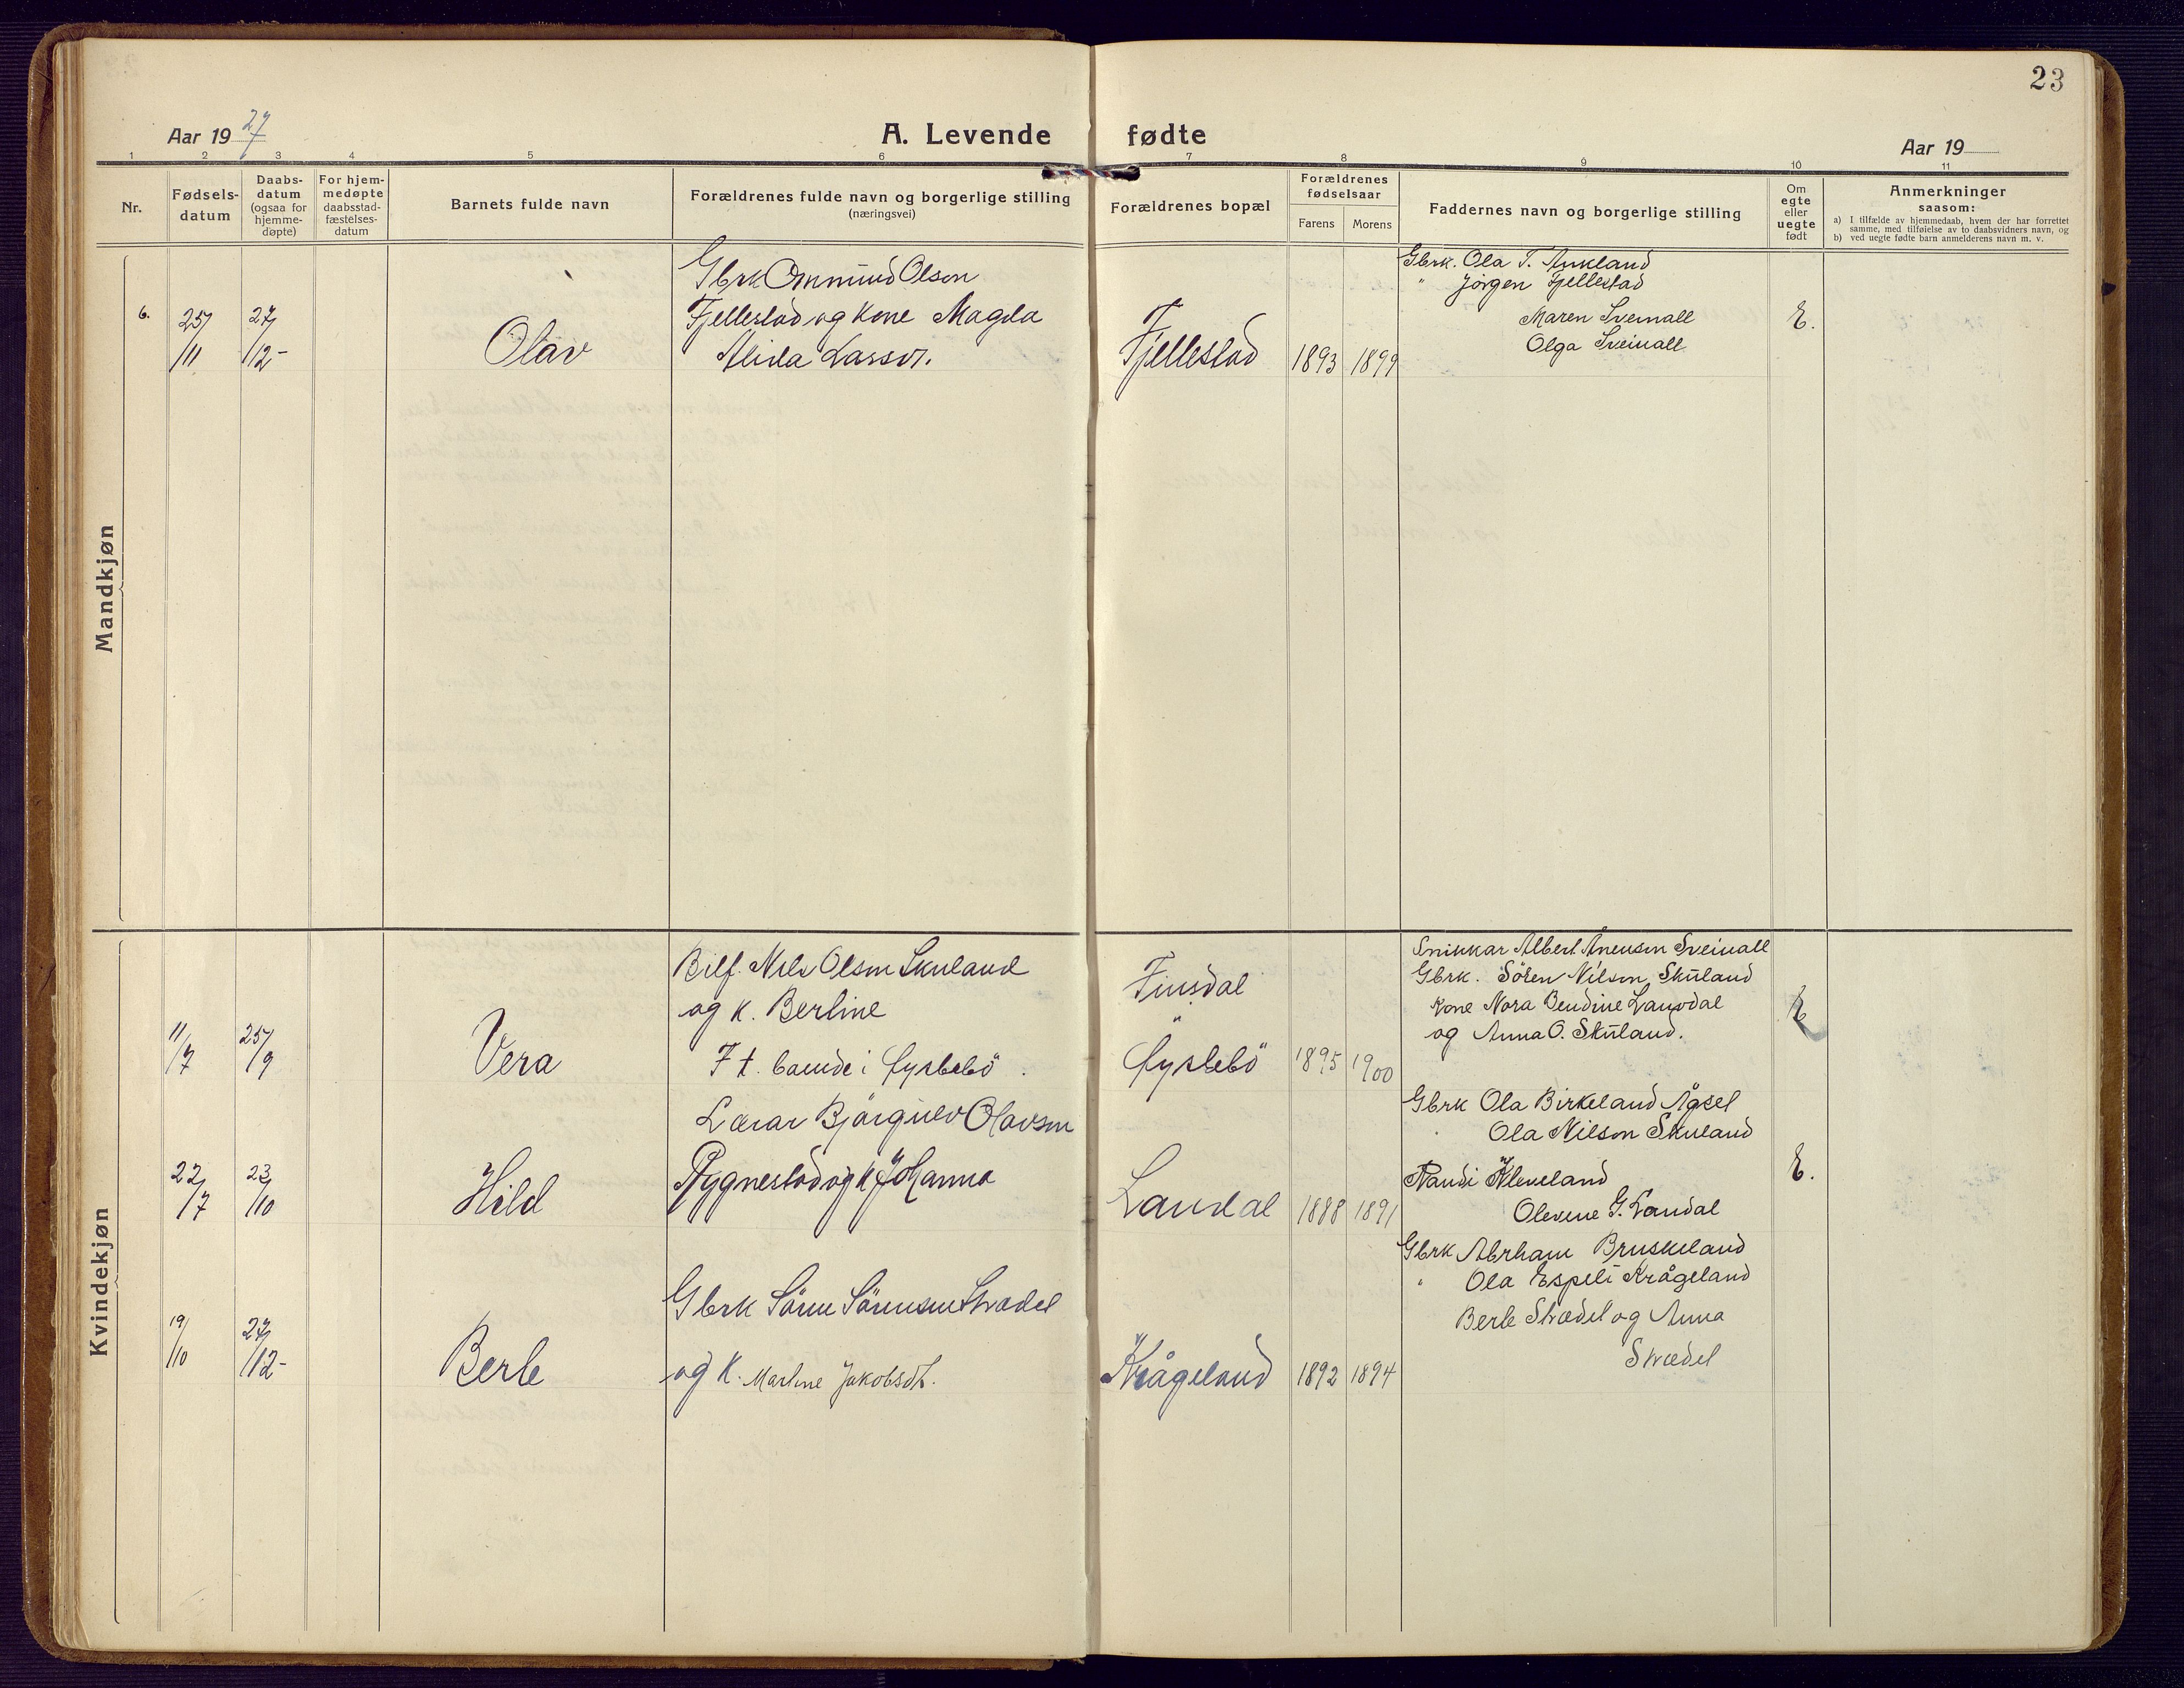 23
Aar 19 27
A. Levende fødte
Aar 19
1 2 3 4 5 6 7 8 9 10 11
Nr.
Fødsels-
datum
Daabs-
datum
(ogsaa for
hjemme-
døpte)
For hjem-
medøpte
daabsstad-
fæstelses-
datum
Barnets fulde navn
Forældrenes fulde navn og borgerlige stilling
(næringsvei)
Forældrenes bopæl
Forældrenes
fødselsaar
Farens Morens
Faddernes navn og borgerlige stilling
Om
egte
eller
uegte
født
Anmerkninger
saasom:
a) I tilfælde av hjemmedaab, hvem der har forrettet
samme, med tilføielse av to daabsvidners navn, og
b) ved uegte fødte barn anmelderens navn m. v.
Mandkjøn
6.
25/11
27/12-
Olav
Gbrk Ommund Olson
Fjellestad og kone Magda
Alida Larsdt.
Fjellestad
1893 1899
Gbrk. Ola T. Aukland
" Jörgen Fjellestad
Maren Sveinall
Olga Sveinall
E.
Kvindekjøn
11/7
25/9
Vera
Bilf. Nils Olson Skuland
og k. Berline
F t. buende i Fyslebö.
Finsdal
Fyslebö
1895 1900
Snikkar Albert Ånenson Sveinall
Gbrk. Sören Nilson Skuland
Kone Nora Bendine
og Anna O. Skuland.
E
22/7
23/10
Hild
Lærar Björgulv Olavson
Rygnestad og k Johanna
Landal
1888 1891
Gbrk Ola Birkeland Ågsel
Ola Nilson Skuland
Randi Kleveland
Olevine G. Landal
E.
19/10
27/12-
Berle
Gbrk Sören Sörenson Strædet
og K. Marline Jakobsdt.
Krågeland
1892 1894
Gbrk Abrham Bruskeland
" Ola Espeli Krågeland
Berle Strædet og Anna
Strædet